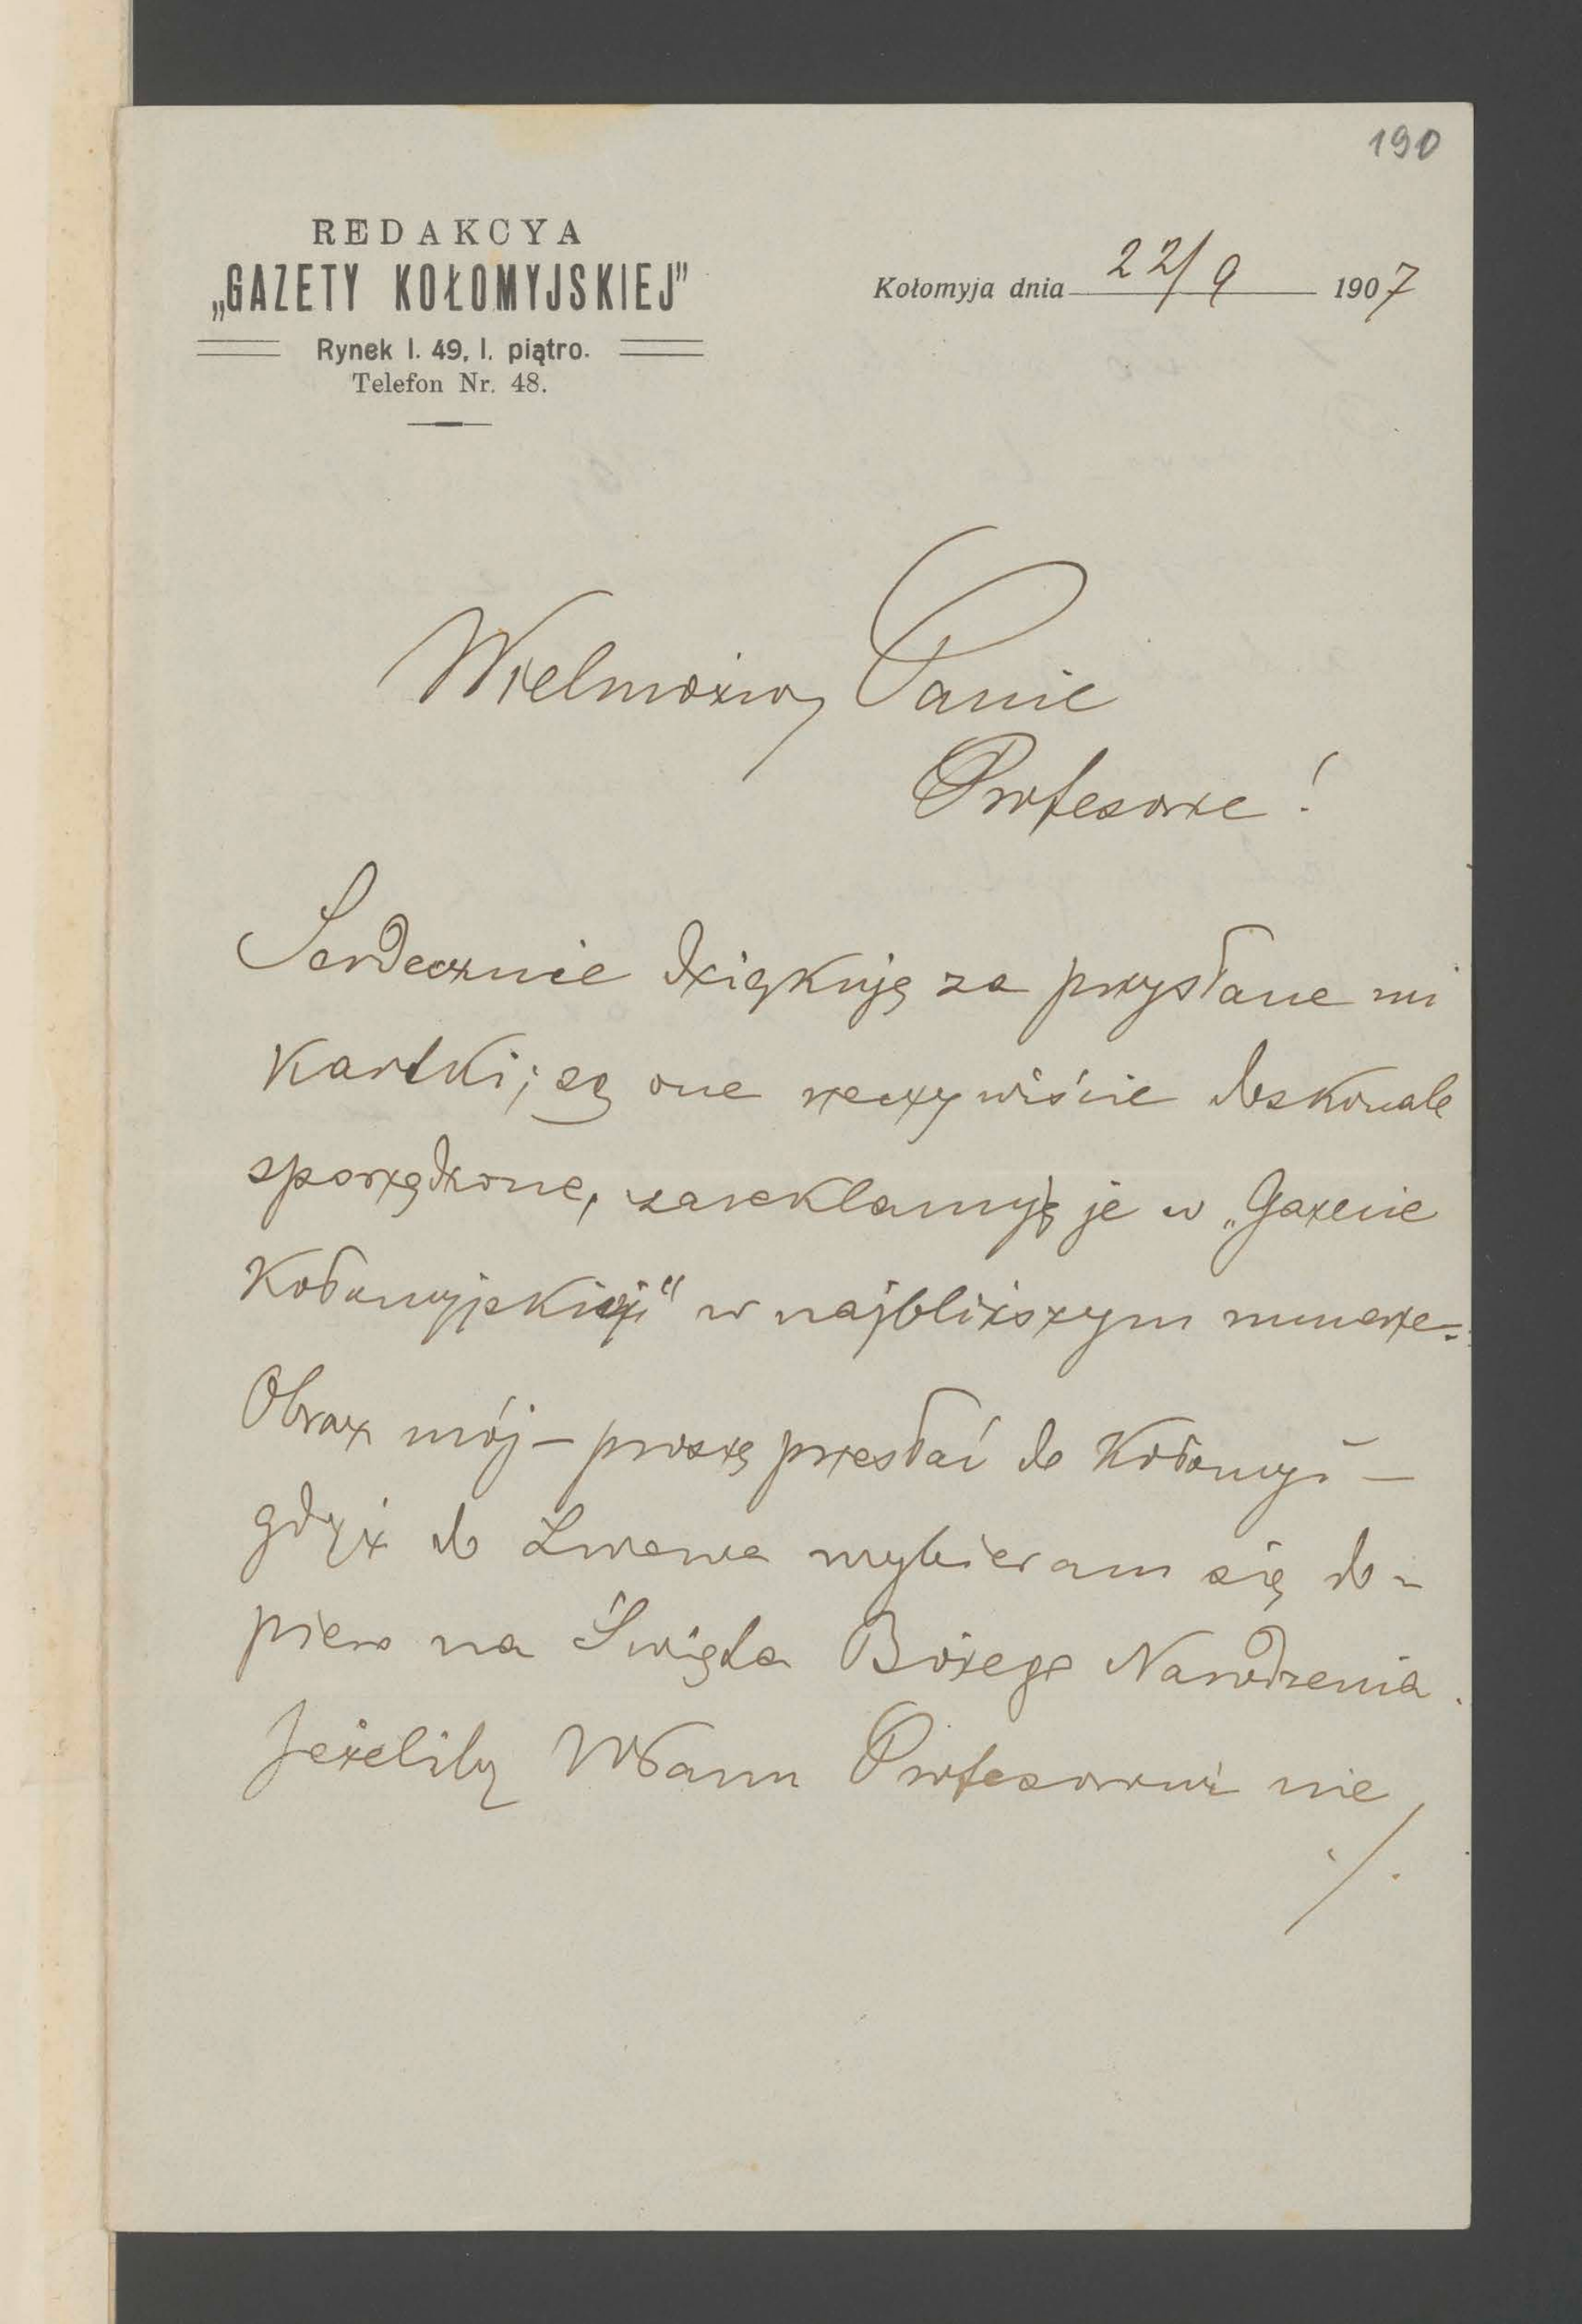 190
REDAKCYA
„GAZETY KOŁOMYJSKIEJ”
Rynek l. 49, I. piątro.
Telefon Nr. 48.
Kołomyja dnia 22/9 1907
Wielmożny Panie
Profesorze!
Serdecznie dziękuję za przysłane mi
kartki; są one rzeczywiście doskonale
sporządzone, zareklamuję je w „Gazecie
Kołomyjskiej" w najbliższym numerze.
Obraz mój – proszę przesłać do Kołomyi –
gdyż do Lwowa wybieram się do-
piero na Święta Bożego Narodzenia.
Jeżeliby WPanu Profesorowi nie
./.